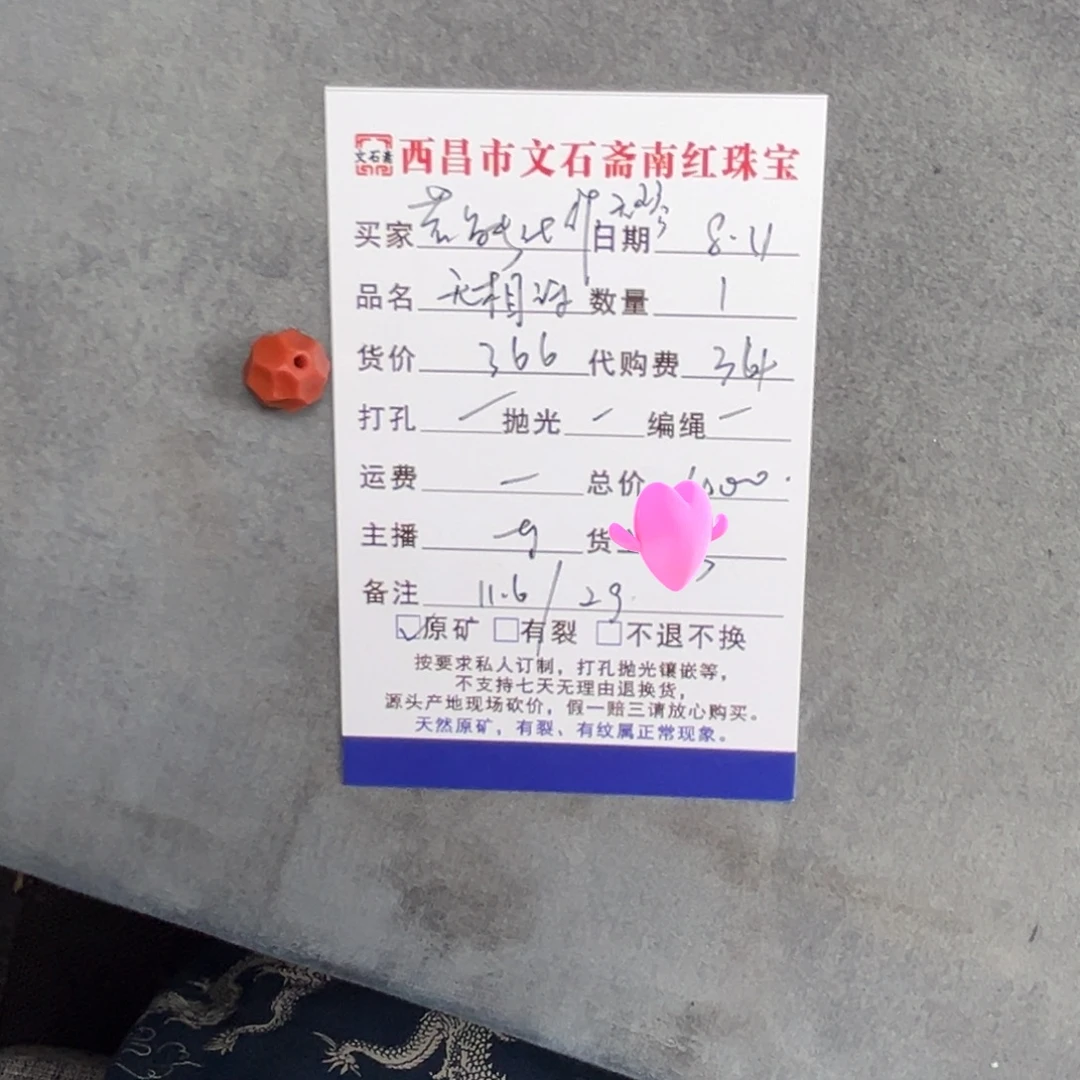 文石斋 西昌市文石斋南红珠宝
买家 日期 8.11
品名 无相珠 数量 1
货价 366 代购费 364
打孔 / 抛光 / 编绳 /
运费 一 总价
主播 货
备注 11.6 / 2g.
原矿 有裂 不退不换
按要求私人订制，打孔抛光镶嵌等，
不支持七天无理由退换货，
源头产地现场砍价，假一赔三请放心购买。
天然原矿，有裂、有纹属正常现象。